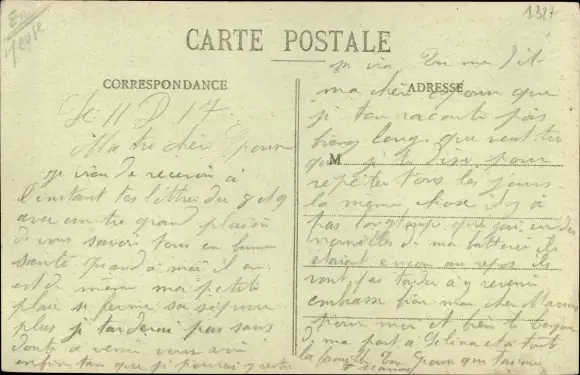 En
Meuse
1327
CARTE POSTALE
CORRESPONDANCE
Le 11 D 17
Ma tre chère Epouse
je vien de recevoir à
l'instant tes lettres du 8 et 9
avec un tre grand plaisir
de vous savoir tous en bonne
santé quand à moi il en
est de même ma petite
plaie se ferme sa sepure
plus je tarderai pas sans
doute à venir vous voir
enfin tan que je pourrai y rester
ADRESSE
M
je vien Tu me dit
ma chère Epouse que
je ten raconte pas
bien long que veut tu
que je te dise pour
repeter tous les jours
la meme chose il y a
pas longtemps que j'ai eu des
nouvelles de ma batterie ils
etaient encore au repos ils
vont pas tarder à y revenir
embrasse bien mon cher
pour moi et bien le bonjour
de ma part à et à toute
la famille Ton Epoux qui t'aime